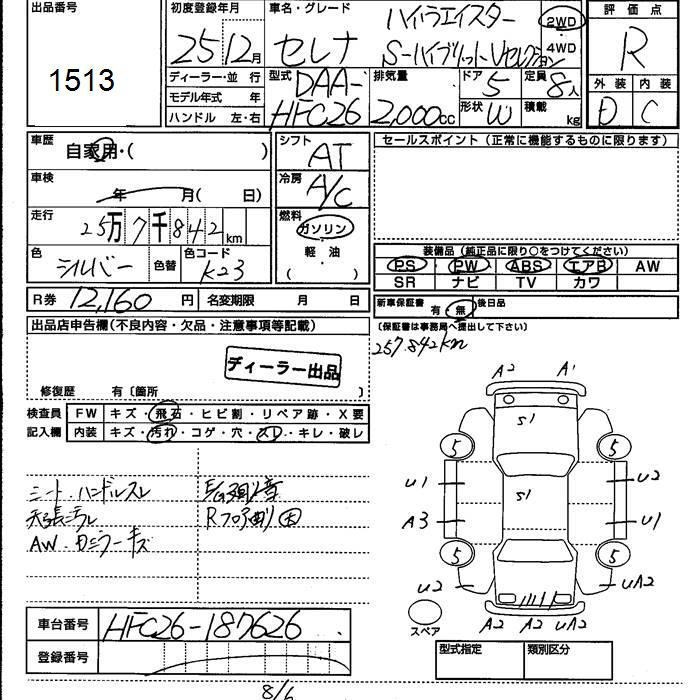 出品番号
1513
初度登録年月
25 12月
車名・グレード
ハイウェイスター
セレナ S-ハイブリットVセレクション
2WD
・
4WD
評価点
R
外装 内装
D C
ディーラー・並 行
モデル年式 年
ハンドル 左・右
型式
DAA-
HFC26
排気量
2,000cc
ドア
5
定員
8人
形状
W
積載
kg
車歴
自家用・( )
車検
年 月( 日)
走行
25万7千842km
色
シルバー
色替
色コード
K23
R券 12,160 円
名変期限 月 日
シフト
AT
冷房
A/C
燃料
ガソリン
・
軽・油
( )
セールスポイント(正常に機能するものに限ります)
装備品(純正品に限り○をつけてください)
PS PW ABS エアB AW
SR ナビ TV カワ
新車保証書 有・無
後日品
(保証書は事務局へ提出して下さい)
257.842km
出品店申告欄(不良内容・欠品・注意事項等記載)
ディーラー出品
修復歴 有〔箇所 〕
検査員
記入欄
FW キズ・飛石・ヒビ割・リペア跡・X要
内装 キズ・汚れ・コゲ・穴・スレ・キレ・破レ
シート.ハンドルスレ
天張汚レ
AW.カミラーキズ
A2 A1
S1
5 5
U1 U2
S1
A3 U1
5 5
U2 UA2
A2 A2 UA2
スペア
車台番号 HFC26-187626
登録番号
型式指定
類別区分
8/6